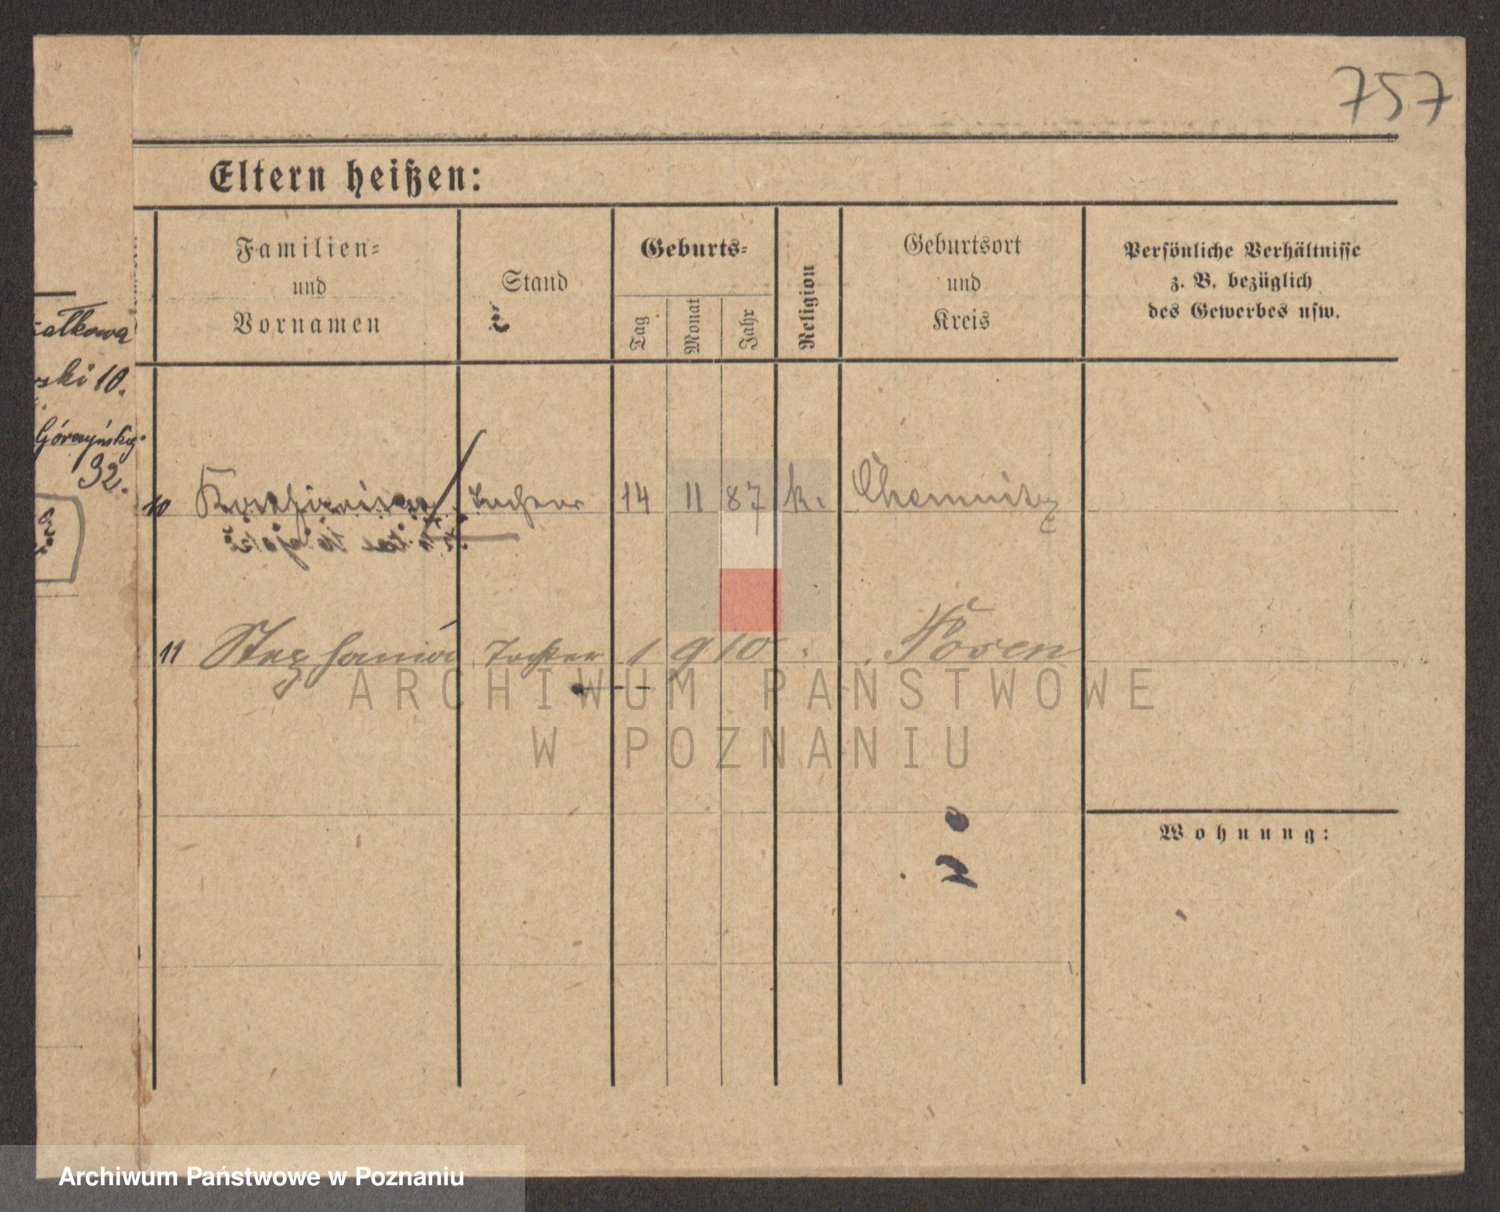 757
Eltern heißen:
Familien-
und
Vornamen
Stand
Geburts-
Tag
Monat
Jahr
Religion
Geburtsort
und
Kreis
Persönliche Verhältnisse
z. B. bezüglich
des Gewerbes usw.
ałkowa
ski 10.
Górczyńska
32.
10 Tochter 14 11 87 k. Chemnitz
11 Stephania Tochter 1 9 10 Posen
ARCHIWUM PAŃSTWOWE
W POZNANIU
Wohnung:
Archiwum Państwowe w Poznaniu